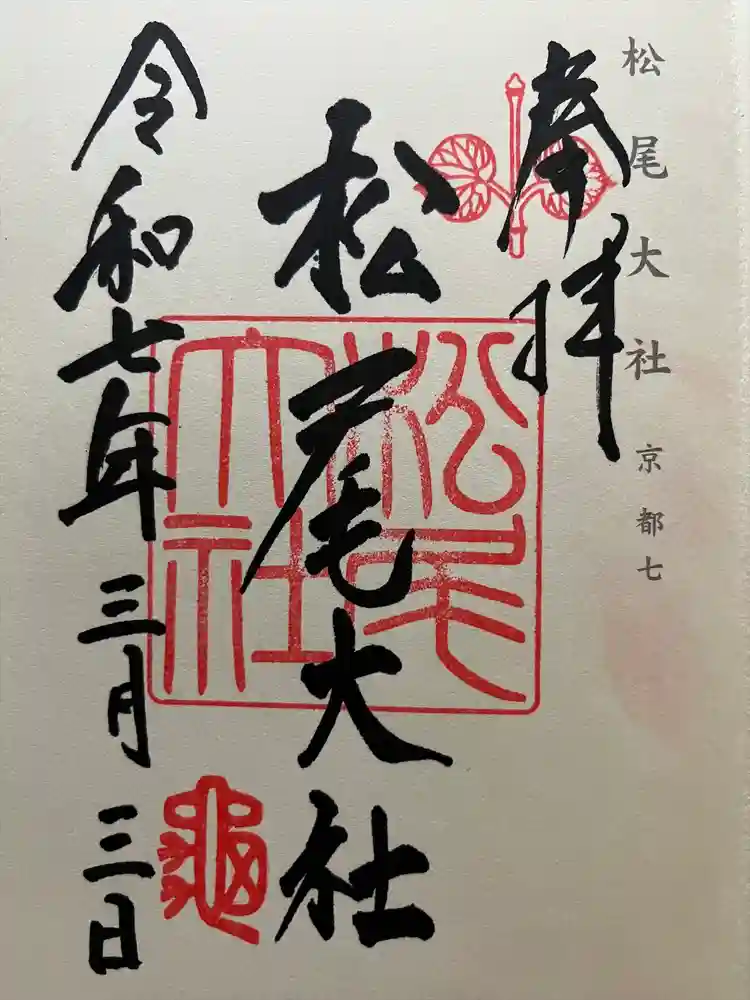 松尾大社 京都七
奉拝
松尾大社
松尾大社
令和七年三月三日
龜